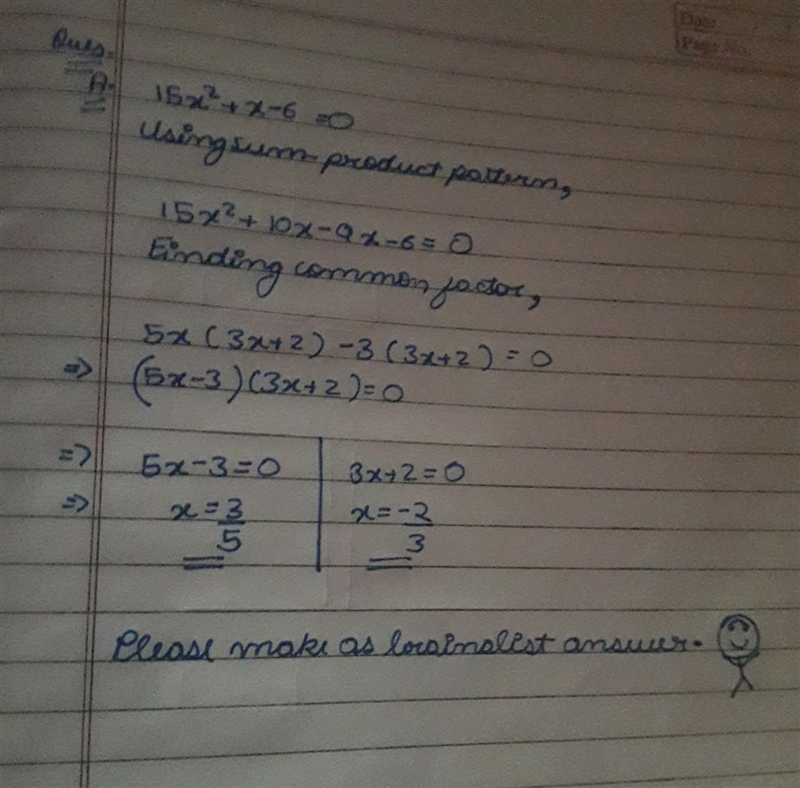 Date
Page No.
Ques.
A. 15x²+x-6 =0
Using sum-product pattern,
15x²+10x-9x-6=0
Finding common factor,
5x(3x+2)-3(3x+2)=0
=> (5x-3)(3x+2)=0
=> 5x-3=0 | 3x+2=0
=> x=3/5 | x=-2/3
Please make as brainliest answer.